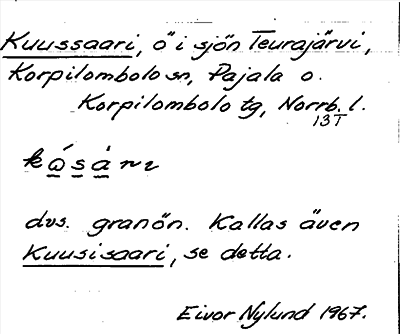 Kuussaari, ö i sjön Teurajärvi,
Korpilombolo sn, Pajala o.
Korpilombolo tg, Norrb. l.
13T
dvs. granön. Kallas även
Kuusisaari, se detta.
Eivor Nylund 1967.